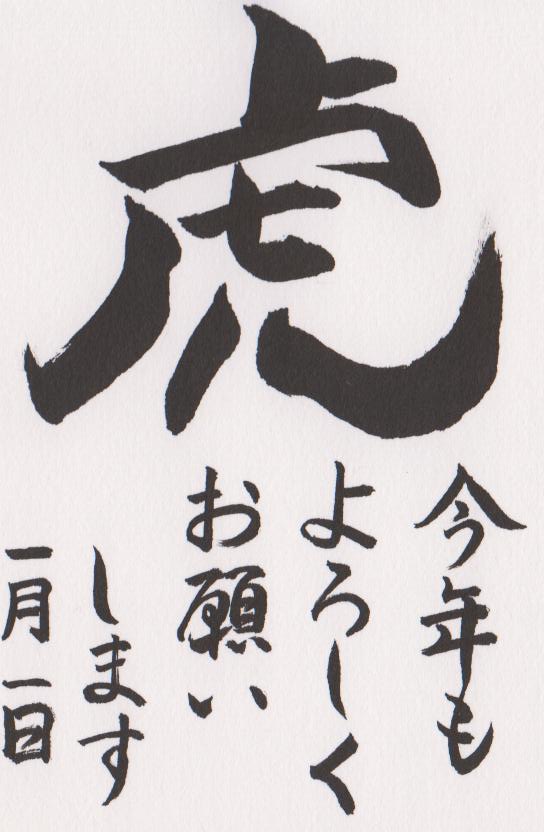 虎
今年も
よろしく
お願い
します
一月一日